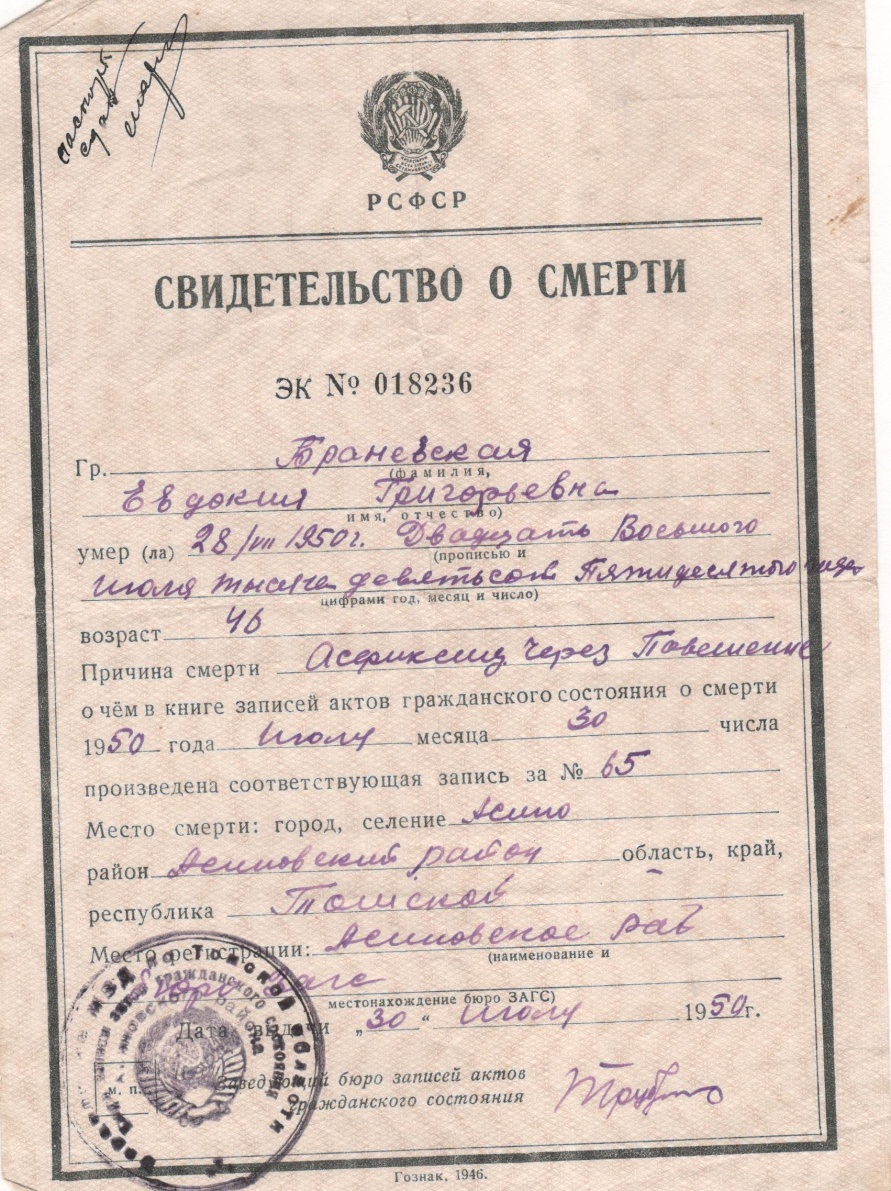 паспорт
сдан
РСФСР
СВИДЕТЕЛЬСТВО О СМЕРТИ
ЭК № 018236
Гр. Браневская
(фамилия,
Евдокия Григорьевна
имя, отчество)
умер (ла) 28/VII 1950г. Двадцать Восьмого
(прописью и
июля тысяча девятьсот Пятидесятого года
цифрами год, месяц и число)
возраст 46
Причина смерти Асфиксия через Повешение
о чём в книге записей актов гражданского состояния о смерти
1950 года Июля месяца 30 числа
произведена соответствующая запись за № 65
Место смерти: город, селение Асино
район Асиновский район область, край,
республика Томской
Место регистрации: Асиновское Рай
(наименование и
бюро Загс
местонахождение бюро ЗАГС)
Дата выдачи „30“ Июля 1950г.
м. п.
Заведующий бюро записей актов
гражданского состояния
Гознак. 1946.